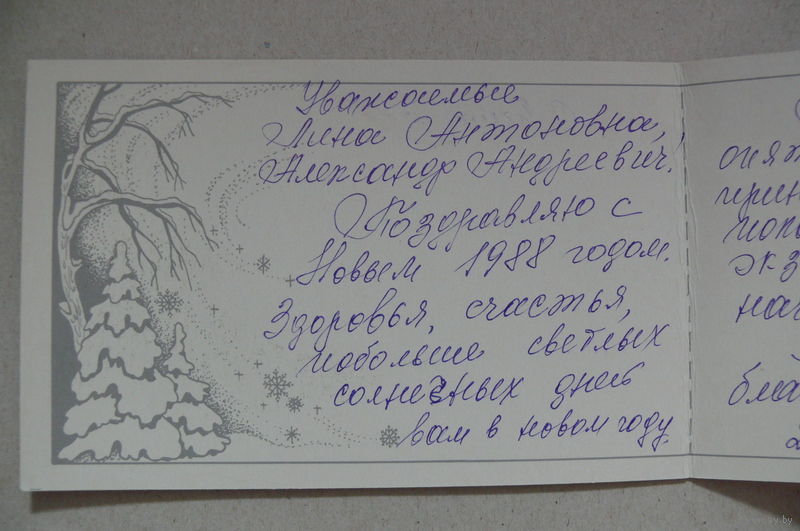 Уважаемые
Лина Антоновна,
Александр Андреевич!
Поздравляю с
Новым 1988 годом.
Здоровья, счастья,
побольше светлых
солнечных дней
вам в новом году.